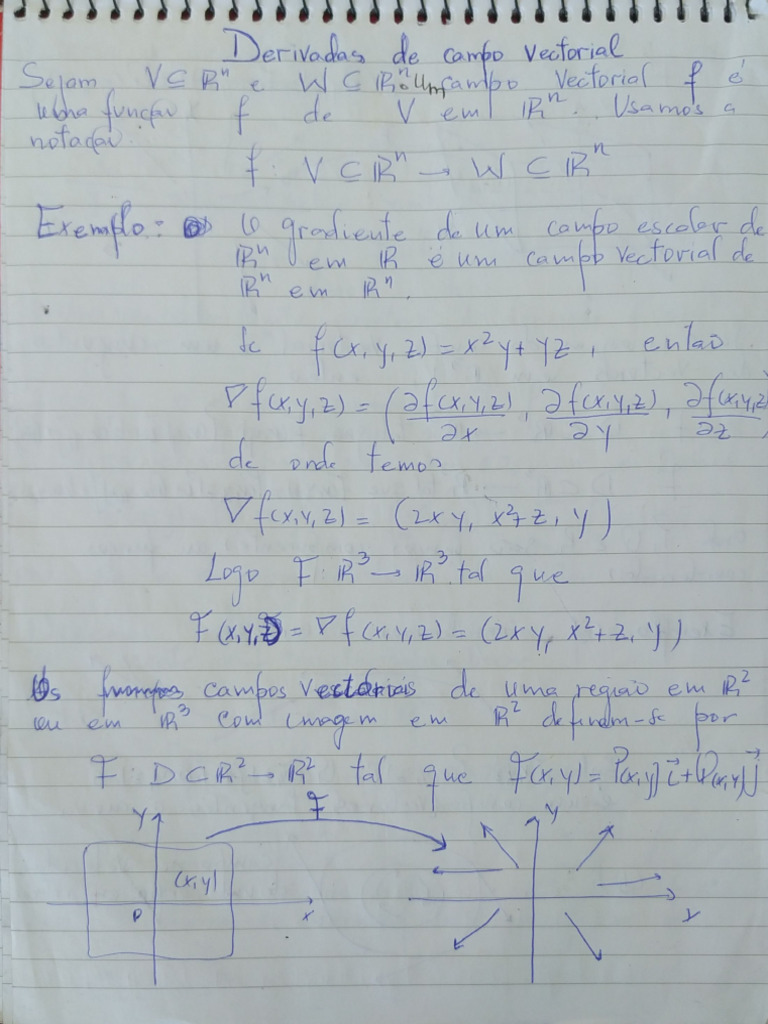 Derivadas de campo vectorial
Sejam V ⊆ ℝⁿ e W ⊂ ℝⁿ. Um campo vectorial f é
uma função f de V em ℝⁿ. Usamos a
notação:
f: V ⊂ ℝⁿ → W ⊆ ℝⁿ
Exemplo: O gradiente de um campo escolar de
ℝⁿ em ℝ é um campo vectorial de
ℝⁿ em ℝⁿ.
Se f(x, y, z) = x²y + yz, então
∇f(x,y,z) = (∂f(x,y,z)/∂x, ∂f(x,y,z)/∂y, ∂f(x,y,z)/∂z
de onde temos
∇f(x,y,z) = (2xy, x²+z, y)
Logo F: ℝ³ → ℝ³ tal que
F(x,y,z) = ∇f(x,y,z) = (2xy, x²+z, y)
Os campos vectoriais de uma região em ℝ²
ou em ℝ³ com imagem em ℝ² definem-se por
F: D ⊂ ℝ² → ℝ² tal que F(x,y) = P(x,y)i⃗ + Q(x,y)j⃗
F
y
y
(x,y)
D
x
x